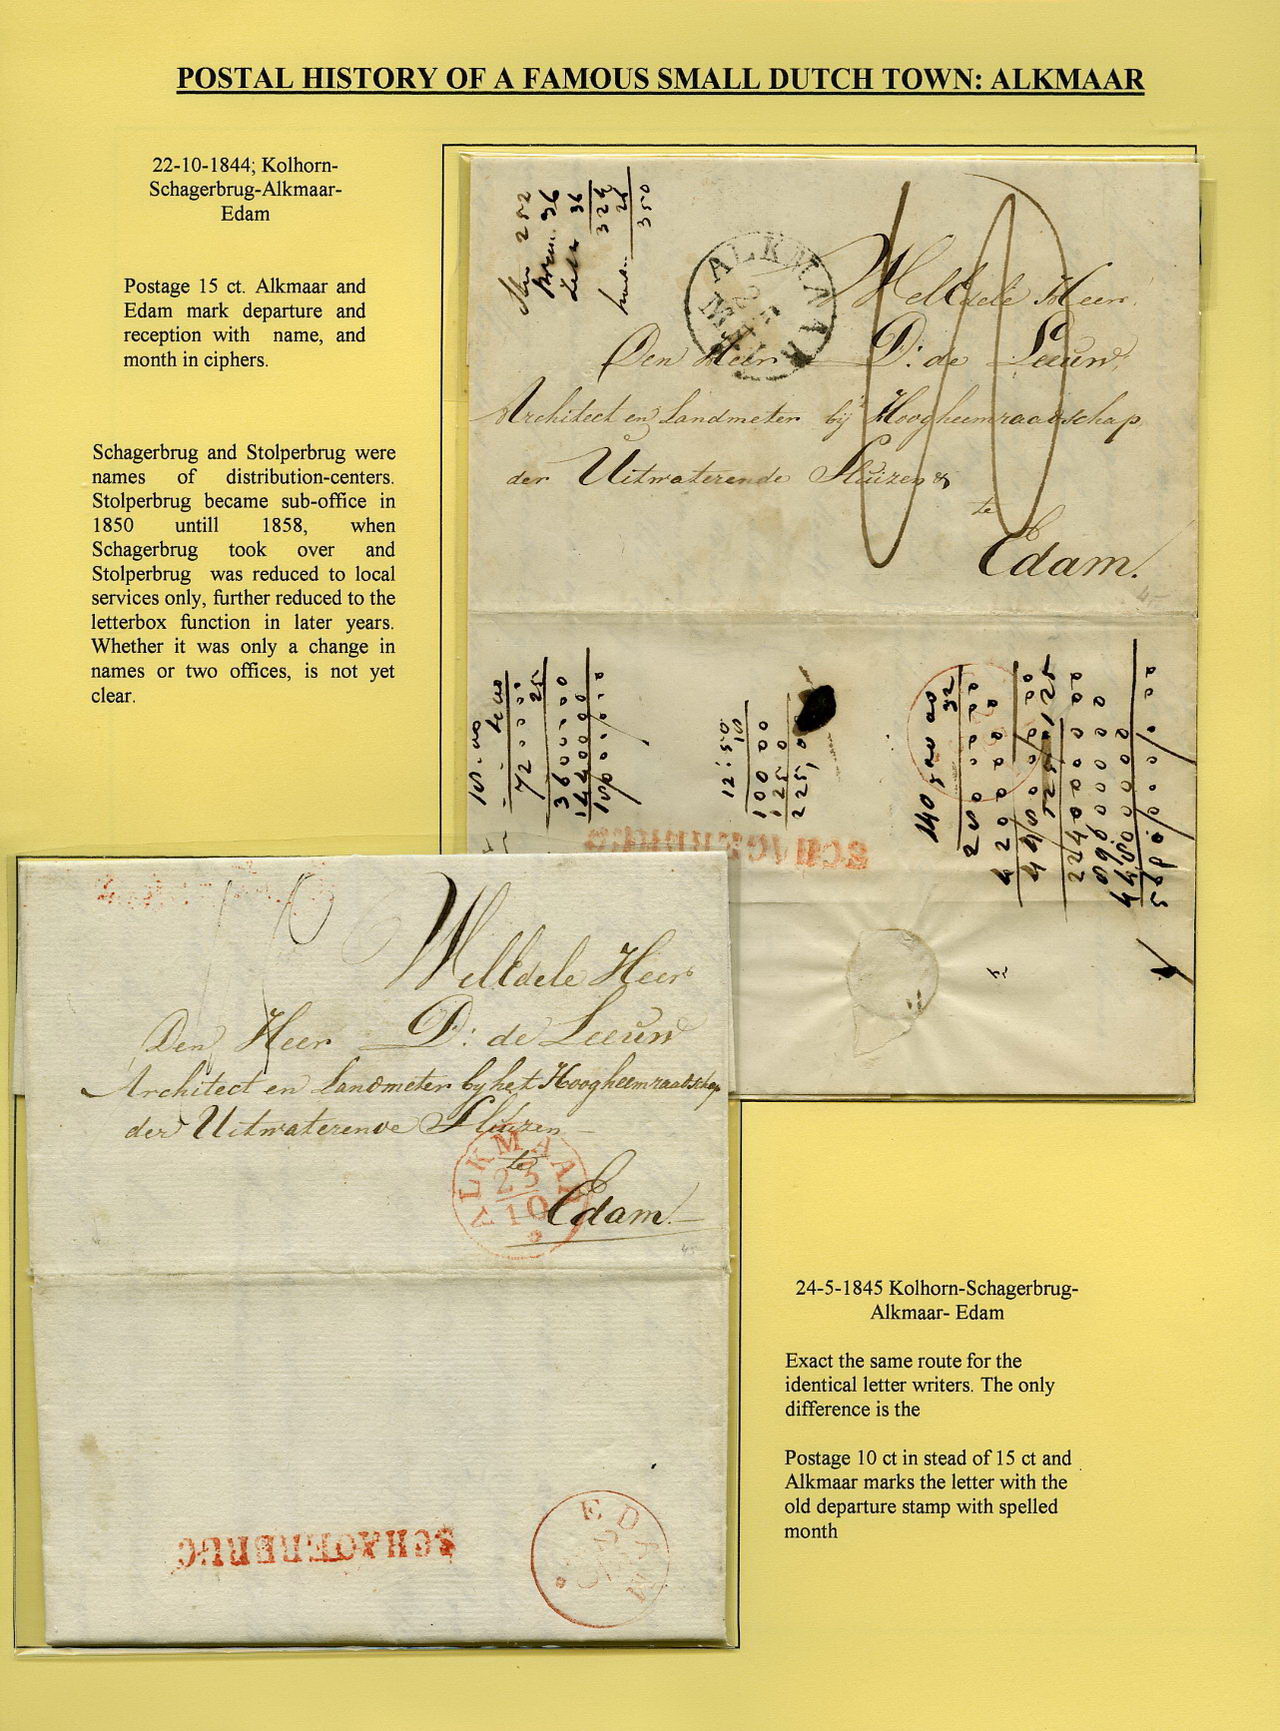 POSTAL HISTORY OF A FAMOUS SMALL DUTCH TOWN: ALKMAAR
22-10-1844; Kolhorn-
Schagerbrug-Alkmaar-
Edam
Postage 15 ct. Alkmaar and
Edam mark departure and
reception with name, and
month in ciphers.
Schagerbrug and Stolperbrug were
names of distribution-centers.
Stolperbrug became sub-office in
1850 untill 1858, when
Schagerbrug took over and
Stolperbrug was reduced to local
services only, further reduced to the
letterbox function in later years.
Whether it was only a change in
names or two offices, is not yet
clear.
252
36
36
324
26
350
ALKMAAR
10
WelEdele Heer
Den Heer D: de Leeuw
Architect en Landmeter bij 't Hoogheemraadschap
der Uitwaterende Sluizen &
te
Edam.
12:50
1000
125
225,0
SCHAGERBRUG
WelEdele Heer
Den Heer D: de Leeuw
Architect en Landmeter by het Hoogheemraadschap
der Uitwaterende Sluizen
te
Edam.
ALKMAAR
23
10
SCHAGERBRUG
EDAM
24-5-1845 Kolhorn-Schagerbrug-
Alkmaar- Edam
Exact the same route for the
identical letter writers. The only
difference is the
Postage 10 ct in stead of 15 ct and
Alkmaar marks the letter with the
old departure stamp with spelled
month